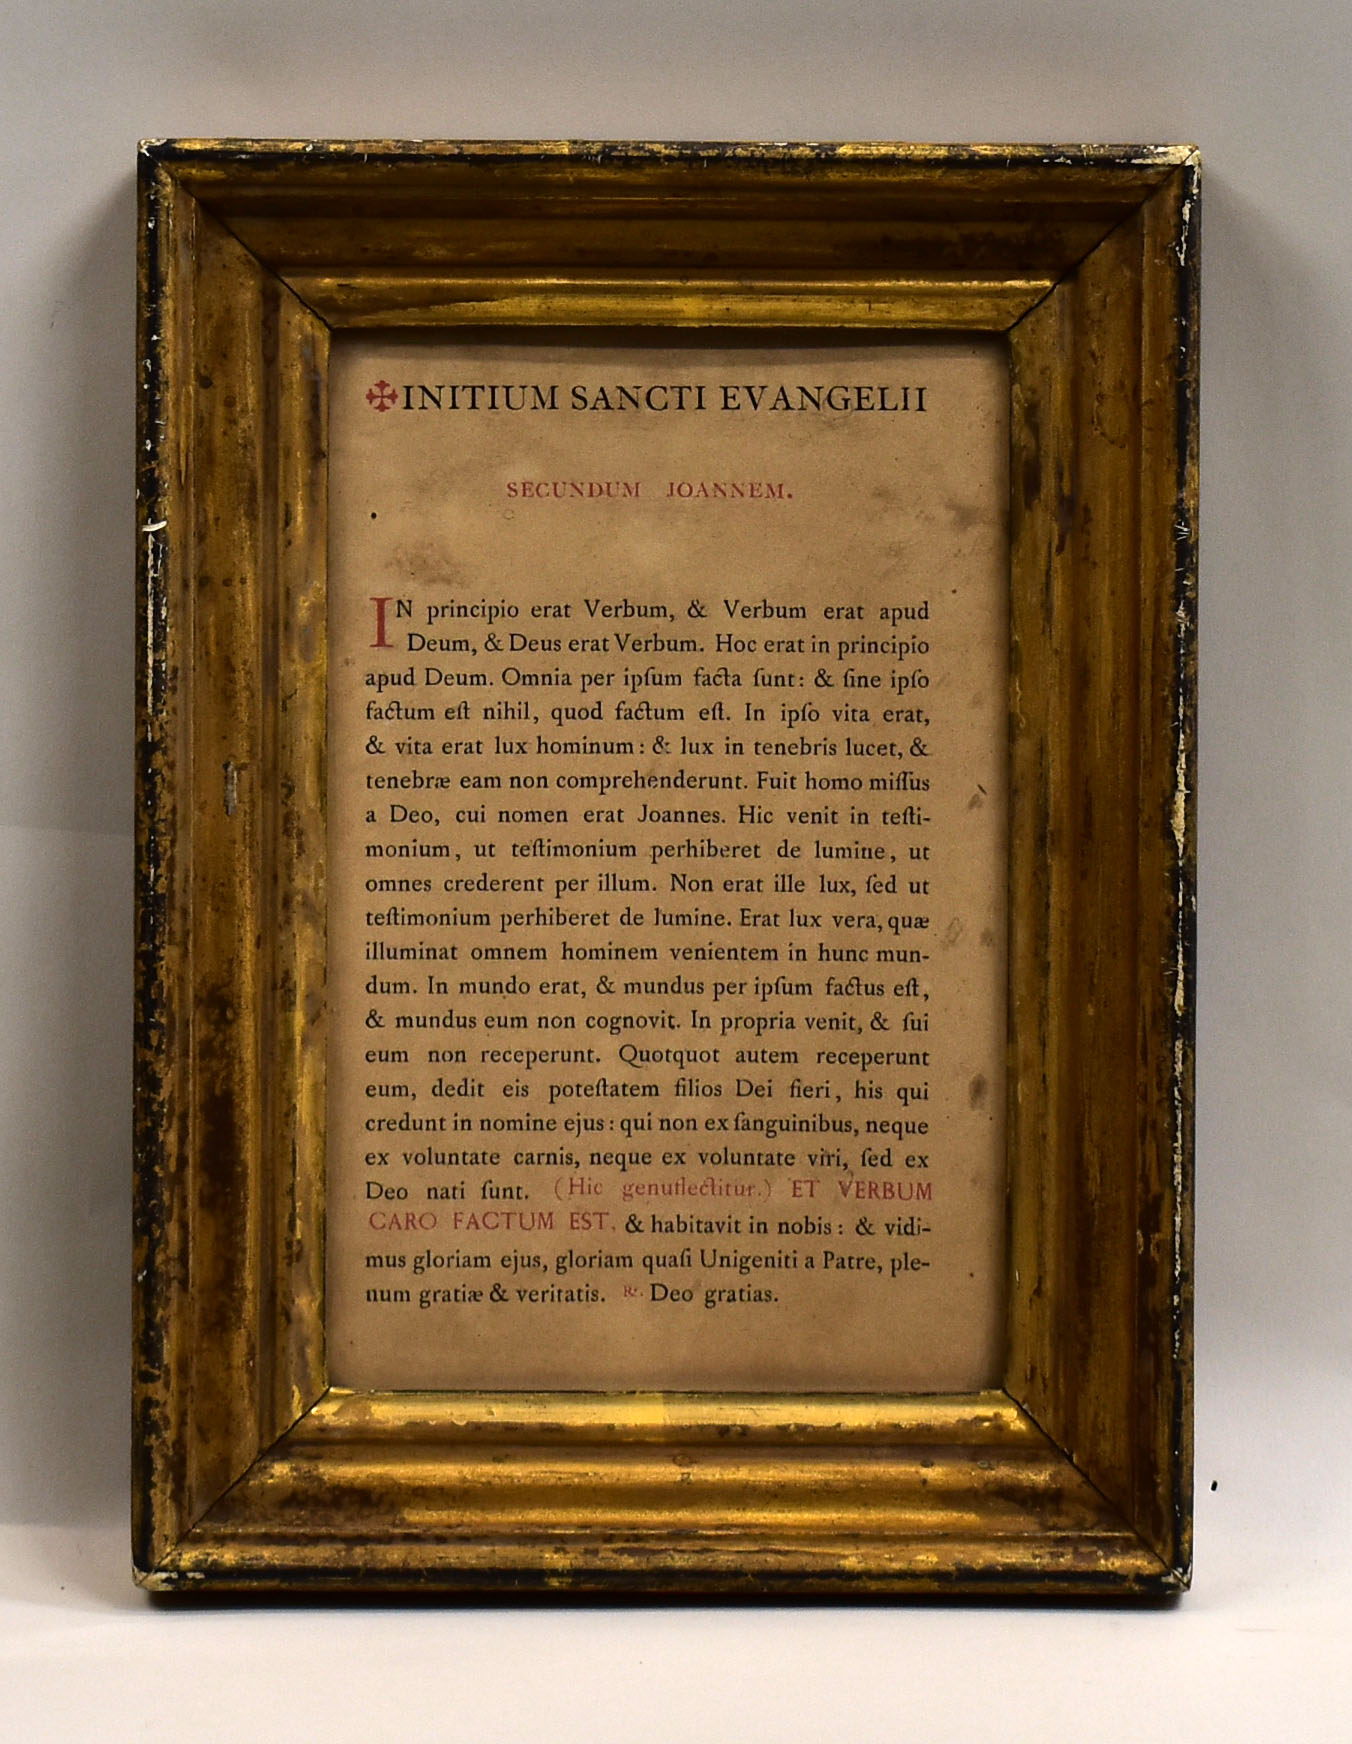 ✠INITIUM SANCTI EVANGELII
SECUNDUM JOANNEM.
IN principio erat Verbum, & Verbum erat apud
Deum, & Deus erat Verbum. Hoc erat in principio
apud Deum. Omnia per ipſum facta ſunt: & ſine ipſo
factum eſt nihil, quod factum eſt. In ipſo vita erat,
& vita erat lux hominum: & lux in tenebris lucet, &
tenebræ eam non comprehenderunt. Fuit homo miſſus
a Deo, cui nomen erat Joannes. Hic venit in teſti-
monium, ut teſtimonium perhiberet de lumine, ut
omnes crederent per illum. Non erat ille lux, ſed ut
teſtimonium perhiberet de lumine. Erat lux vera, quæ
illuminat omnem hominem venientem in hunc mun-
dum. In mundo erat, & mundus per ipſum factus eſt,
& mundus eum non cognovit. In propria venit, & ſui
eum non receperunt. Quotquot autem receperunt
eum, dedit eis poteſtatem filios Dei fieri, his qui
credunt in nomine ejus: qui non ex ſanguinibus, neque
ex voluntate carnis, neque ex voluntate viri, ſed ex
Deo nati ſunt. (Hic genuflectitur.) ET VERBUM
CARO FACTUM EST, & habitavit in nobis: & vidi-
mus gloriam ejus, gloriam quaſi Unigeniti a Patre, ple-
num gratiæ & veritatis. ℟. Deo gratias.